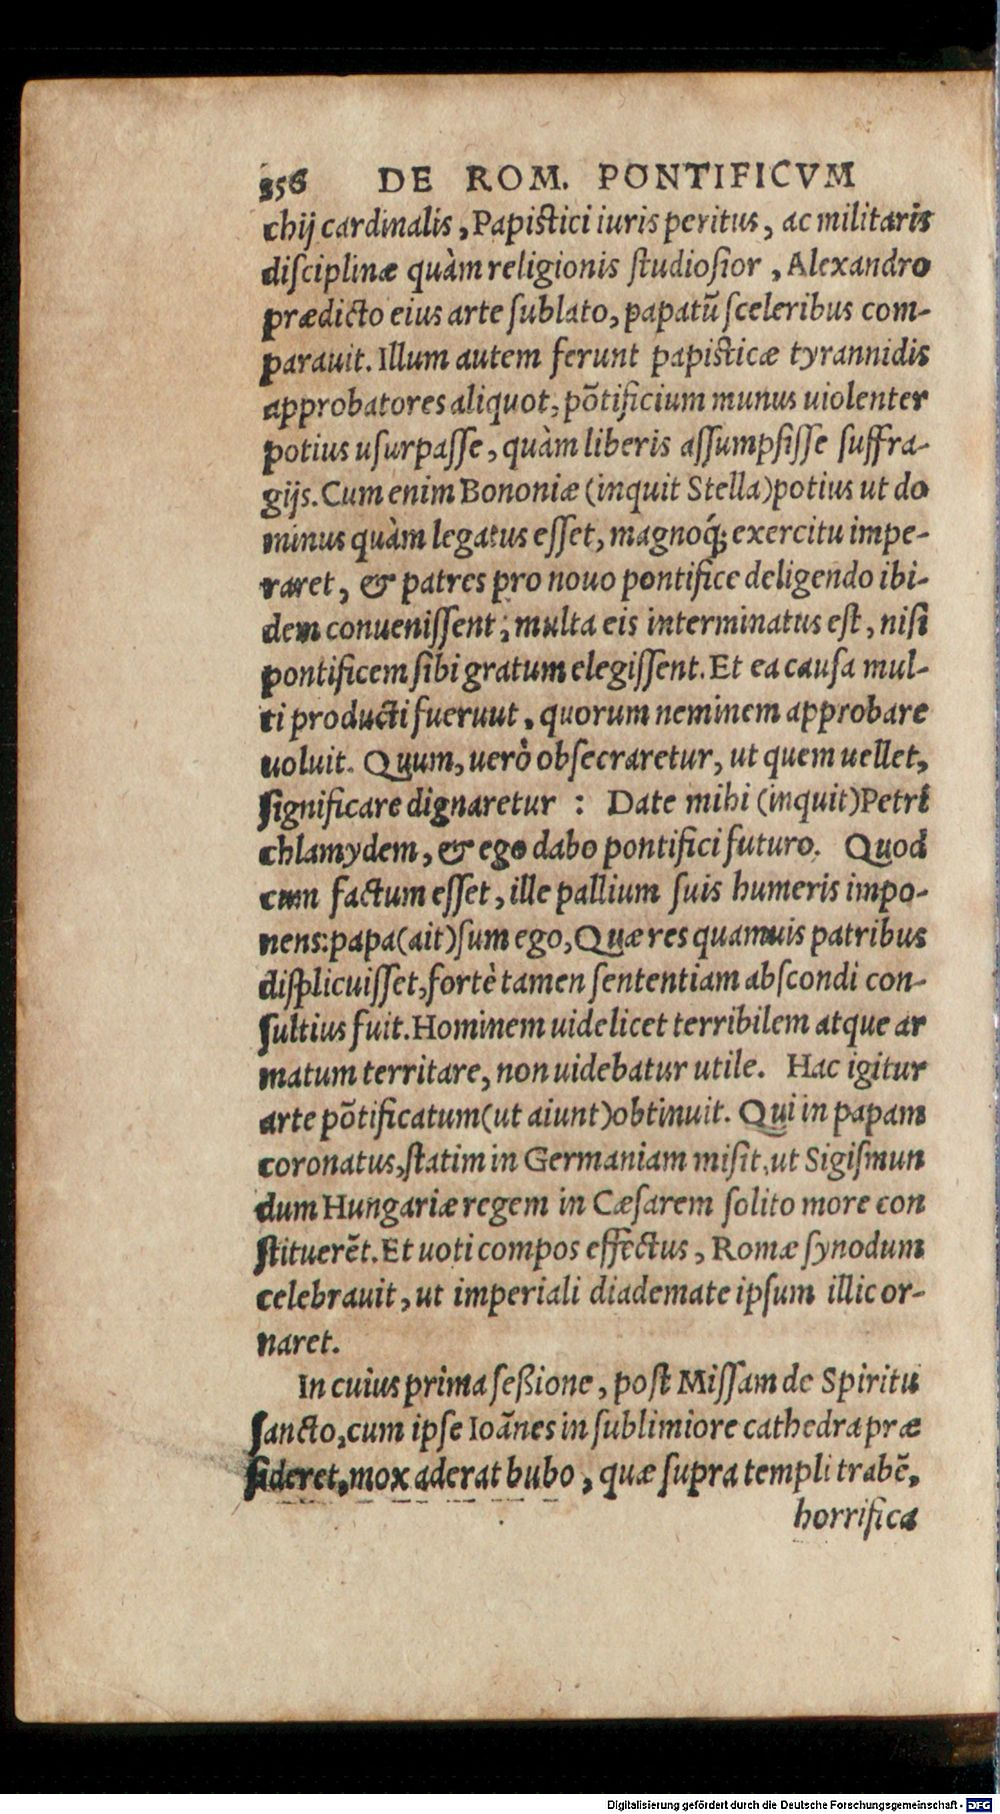 356 DE ROM. PONTIFICVM
chij cardinalis, Papistici iuris peritus, ac militaris
disciplinæ quàm religionis studiosior, Alexandro
prædicto eius arte sublato, papatū sceleribus com-
parauit. Illum autem ferunt papisticæ tyrannidis
approbatores aliquot, põtificium munus uiolenter
potius usurpasse, quàm liberis assumpsisse suffra-
gijs. Cum enim Bononiæ (inquit Stella) potius ut do
minus quàm legatus esset, magnoq́; exercitu impe-
raret, & patres pro nouo pontifice deligendo ibi-
dem conuenissent, multa eis interminatus est, nisi
pontificem sibi gratum elegissent. Et ea causa mul-
ti producti fueruut, quorum neminem approbare
uoluit. Quum, uerò obsecraretur, ut quem uellet,
significare dignaretur : Date mihi (inquit) Petri
chlamydem, & ego dabo pontifici futuro. Quod
cum factum esset, ille pallium suis humeris impo-
nens: papa (ait) sum ego, Quæ res quamuis patribus
displicuisset, fortè tamen sententiam abscondi con-
sultius fuit. Hominem uidelicet terribilem atque ar
matum territare, non uidebatur utile. Hac igitur
arte põtificatum (ut aiunt) obtinuit. Qui in papam
coronatus, statim in Germaniam misit, ut Sigismun
dum Hungariæ regem in Cæsarem solito more con
stituerẽt. Et uoti compos effectus, Romæ synodum
celebrauit, ut imperiali diademate ipsum illic or-
naret.
In cuius prima seßione, post Missam de Spiritu
sancto, cum ipse Ioãnes in sublimiore cathedra præ
sideret, mox aderat bubo, quæ supra templi trabẽ,
horrifica
Digitalisierung gefördert durch die Deutsche Forschungsgemeinschaft - DFG